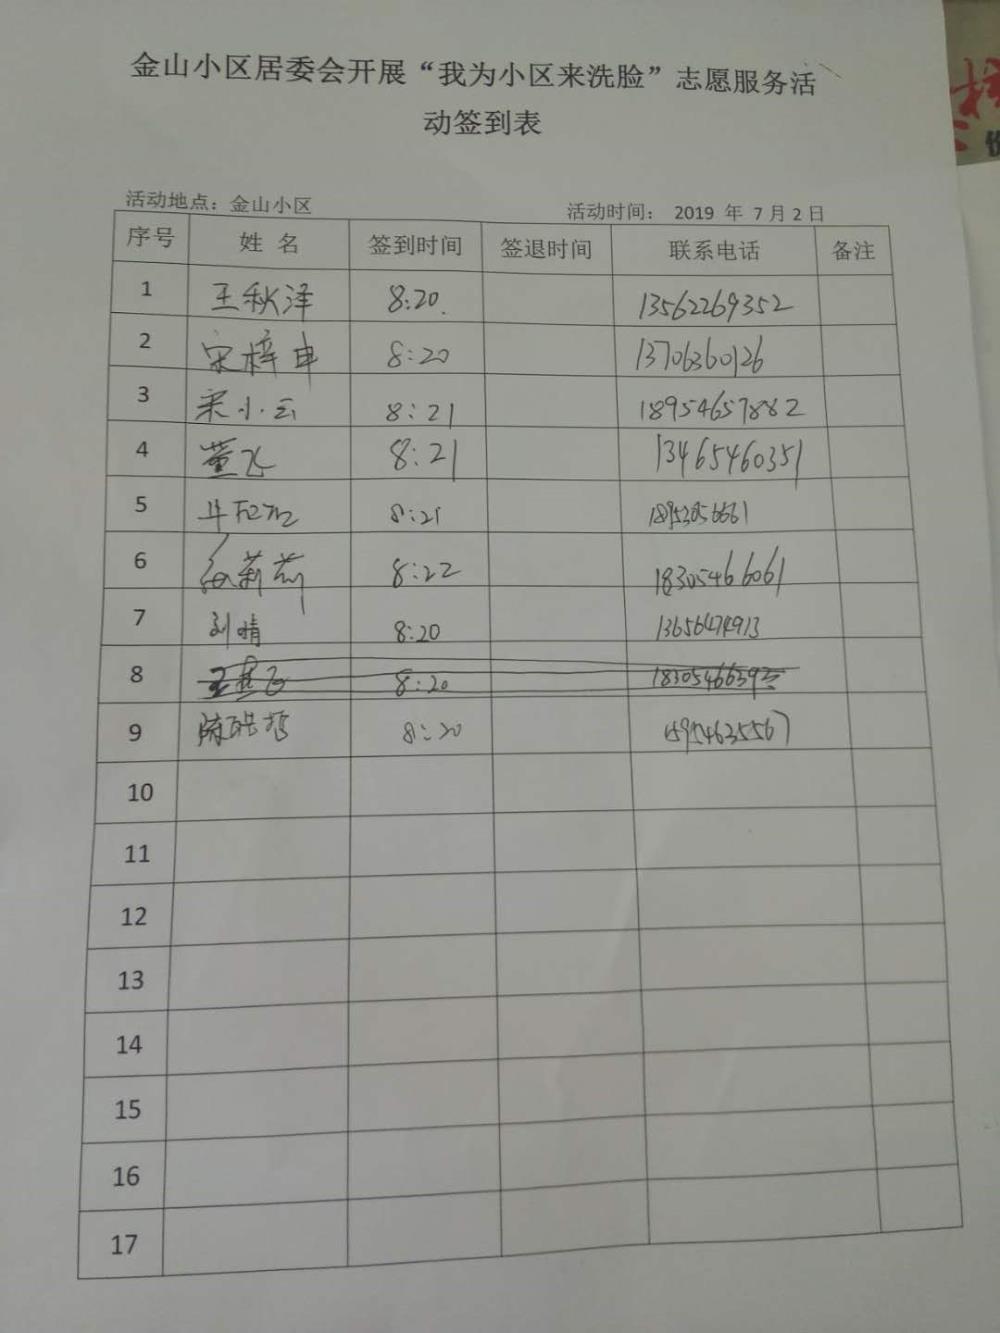 金山小区居委会开展“我为小区来洗脸”志愿服务活
动签到表
活动地点：金山小区 活动时间： 2019 年 7 月 2 日
序号 姓 名 签到时间 签退时间 联系电话 备注
1 王秋泽 8:20. 13562269352
2 宋梓申 8:20 13706360126
3 宋小云 8:21 18954657882
4 董飞 8:21 13465460351
5 8:21
6 莉莉 8:22 18305466061
7 刘晴 8:20 13656474913
8 8:20
9 陈皓哲 8:20 15954635567
10
11
12
13
14
15
16
17